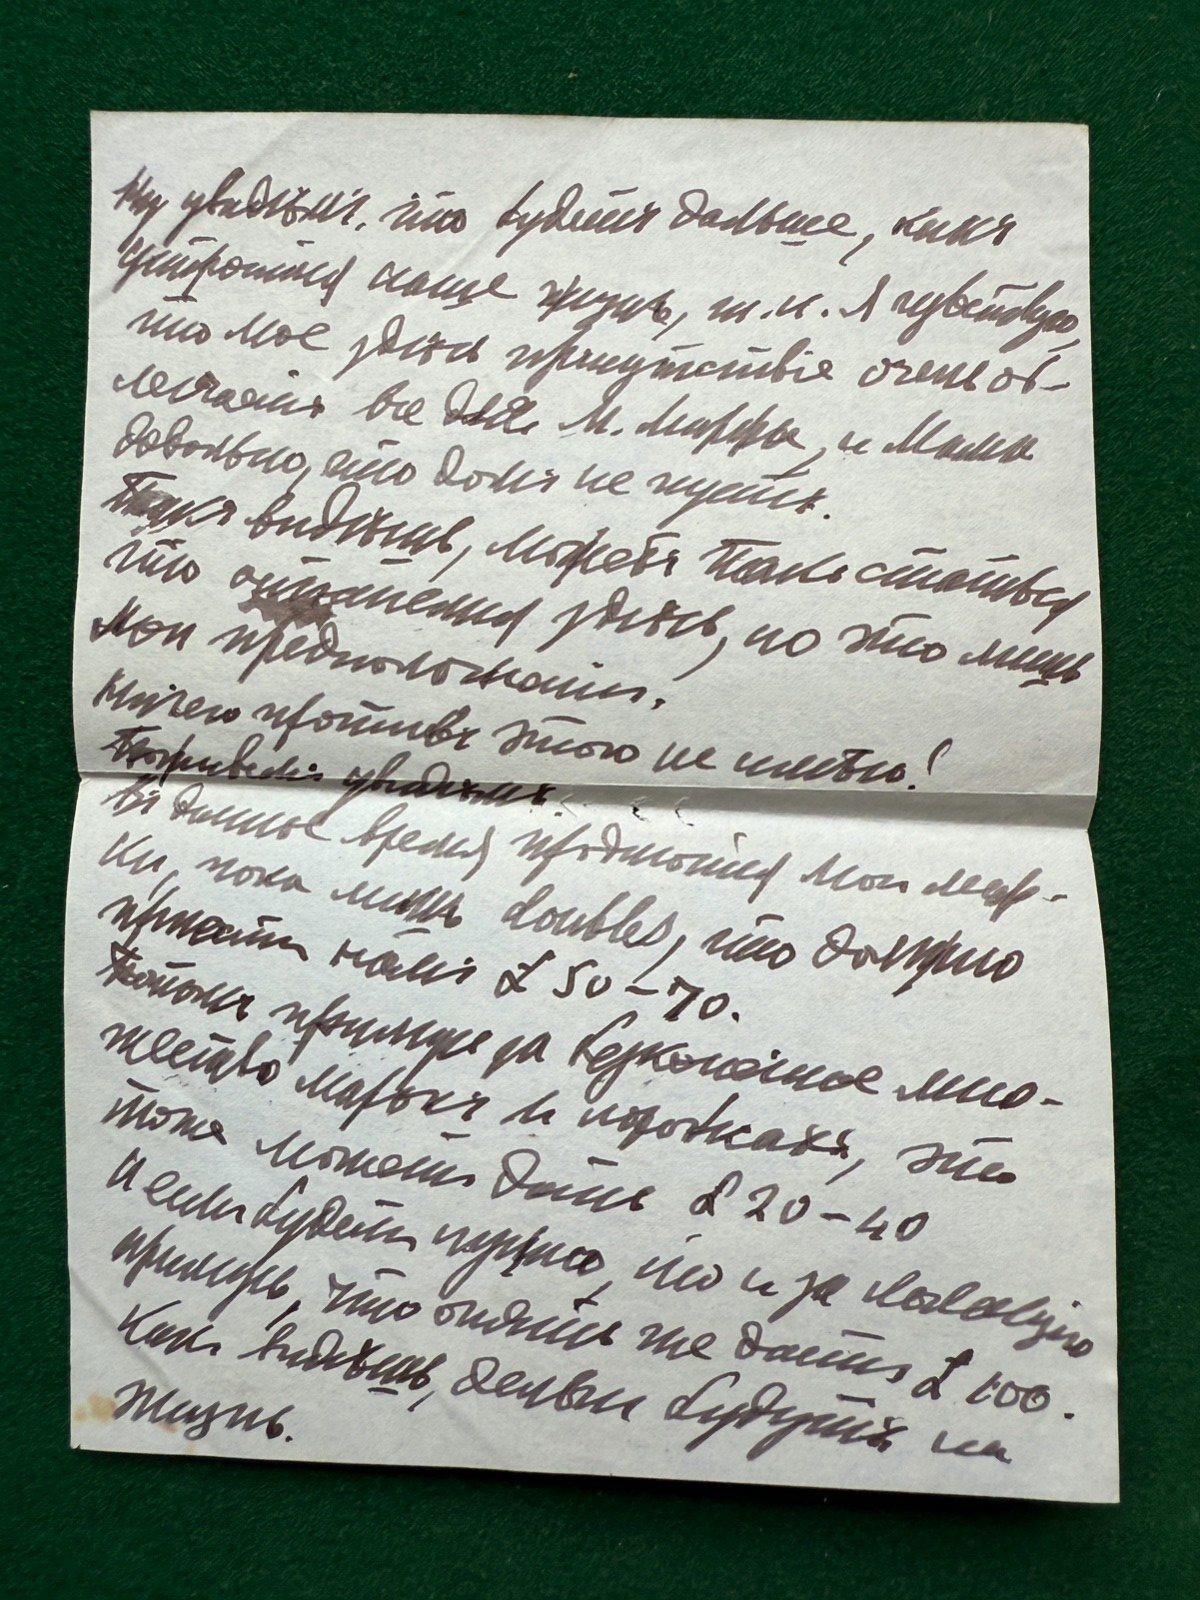 Ну увидимъ, что будетъ дальше, какъ
устроится наша жизнь, т.к. я чувствую,
что мое здѣсь присутствіе очень об-
легчаетъ все для М. Марфы, и Мама
довольна, что домъ не пустъ.
Такъ видишь, можетъ такъ статься
что останемся здѣсь, но это лишь
мои предположенія.
Ничего противъ этого не имѣю!
Поживемъ увидимъ
Въ данное время продаются мои мар-
ки, пока лишь doubles, что должно
принести намъ £ 50-70.
Потомъ примусь за безконечное мно-
жество марокъ и коробкахъ, это
тоже можетъ дать £ 20-40
И если будетъ нужно, то и за
примусь, что опять же дастъ £ 100.
Какъ видишь, деньги будутъ на
жизнь.